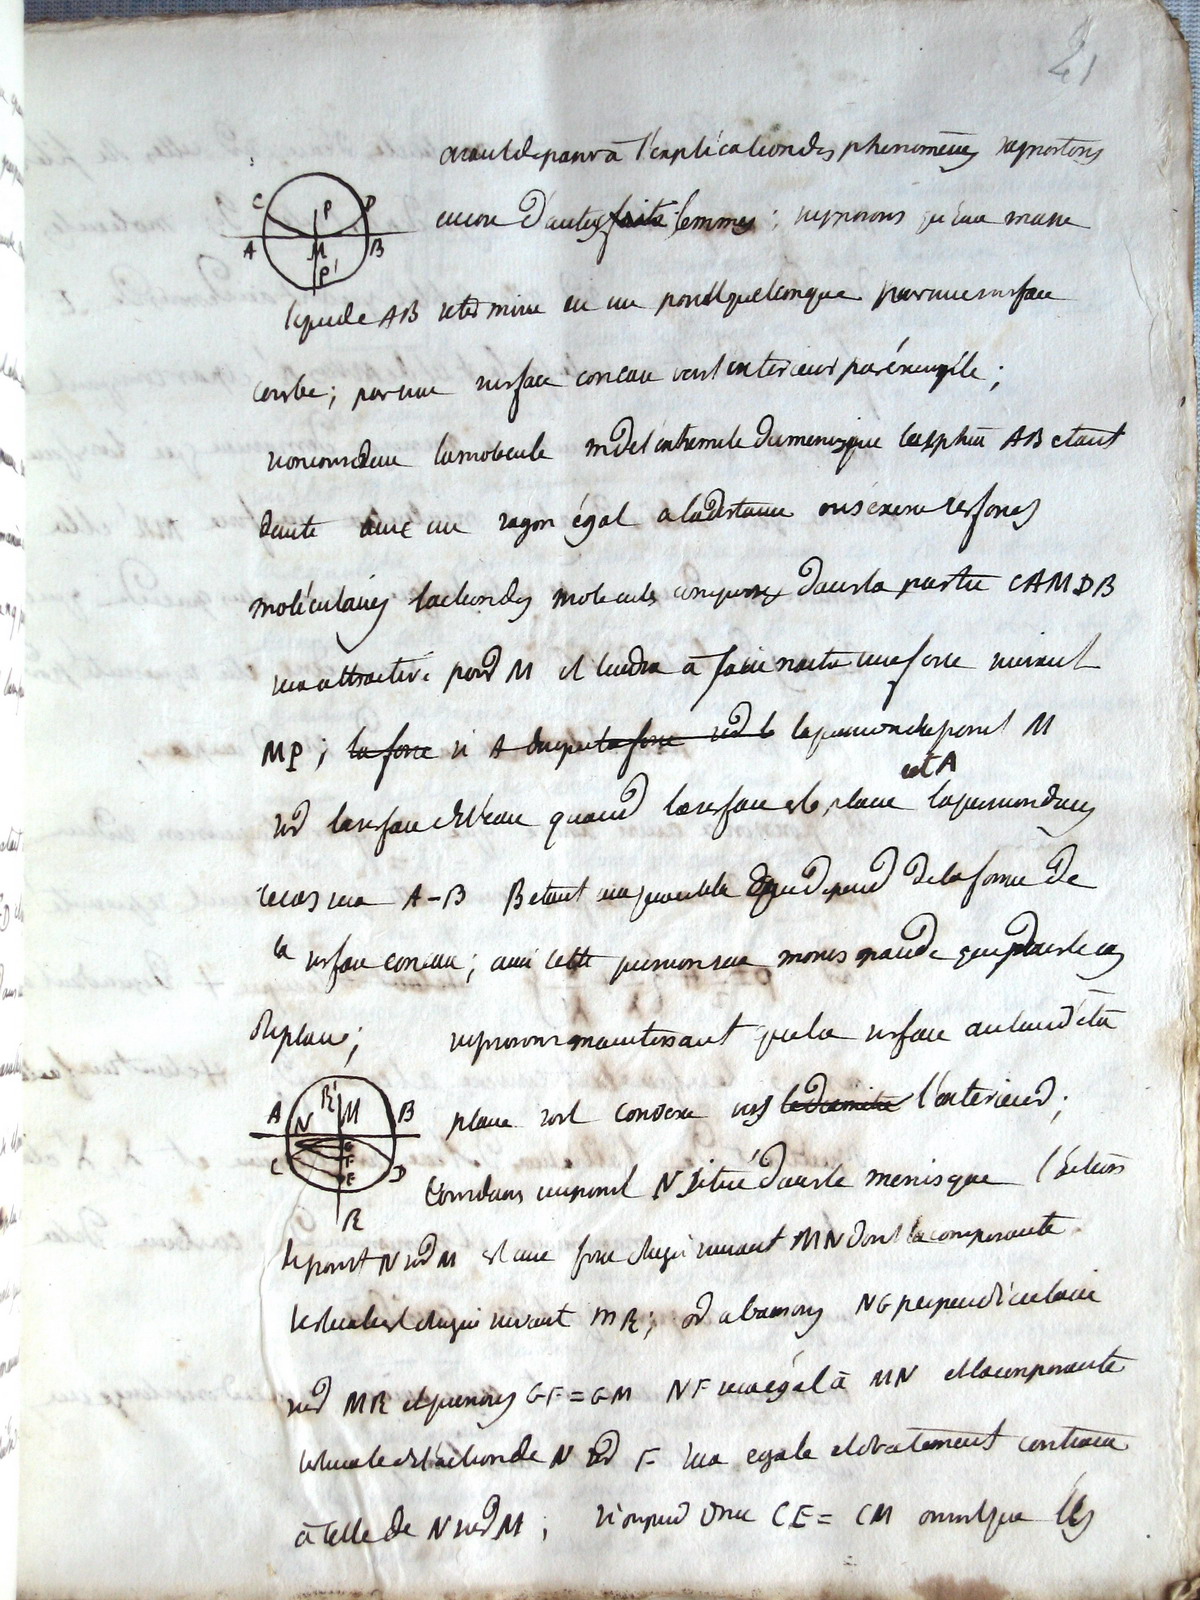 21
avant de passer à l'explication des phenomènes rapportons
C P D
encore d'autres faits lemmes ; supposons qu'une masse
A M B
P'
liquide AB se termine en un point quelconque par une surface
courbe ; par une surface concave vers l'interieur par éxemple ;
si on considere la molecule m de l'extremité du menisque la sphere AB etant
decrite avec un rayon égal a la distance ou s'éxerce les forces
moléculaires l'action des molecules comprises dans la partie CAMDB
sera attractive pour M et tendra à faire naitre une force suivant
MP ; la force si A la pression du point M
est A
sur la surface de l'eau quand la surface est plane la pression dans
ce cas sera A-B B etant une quantité qui depend de la forme de
la surface concave ; ainsi cette pression sera moins grande que dans le cas
du plan ; supposons maintenant que la surface au lieu d'être
A N R' M B
plane soit convexe vers l'exterieur ;
C G F E D
Considerons un point N situé dans le menisque l'action
R
du point N sur M est une force dirigée suivant MN dont la composante
verticale est dirigée suivant MR ; or abaissons NG perpendiculaire
sur MR et prenons GF = GM NF sera égal à MN et la composante
verticale de l'action de N sur F sera egale et directement contraire
à celle de N sur M ; si on prend donc CE = CM on voit que les